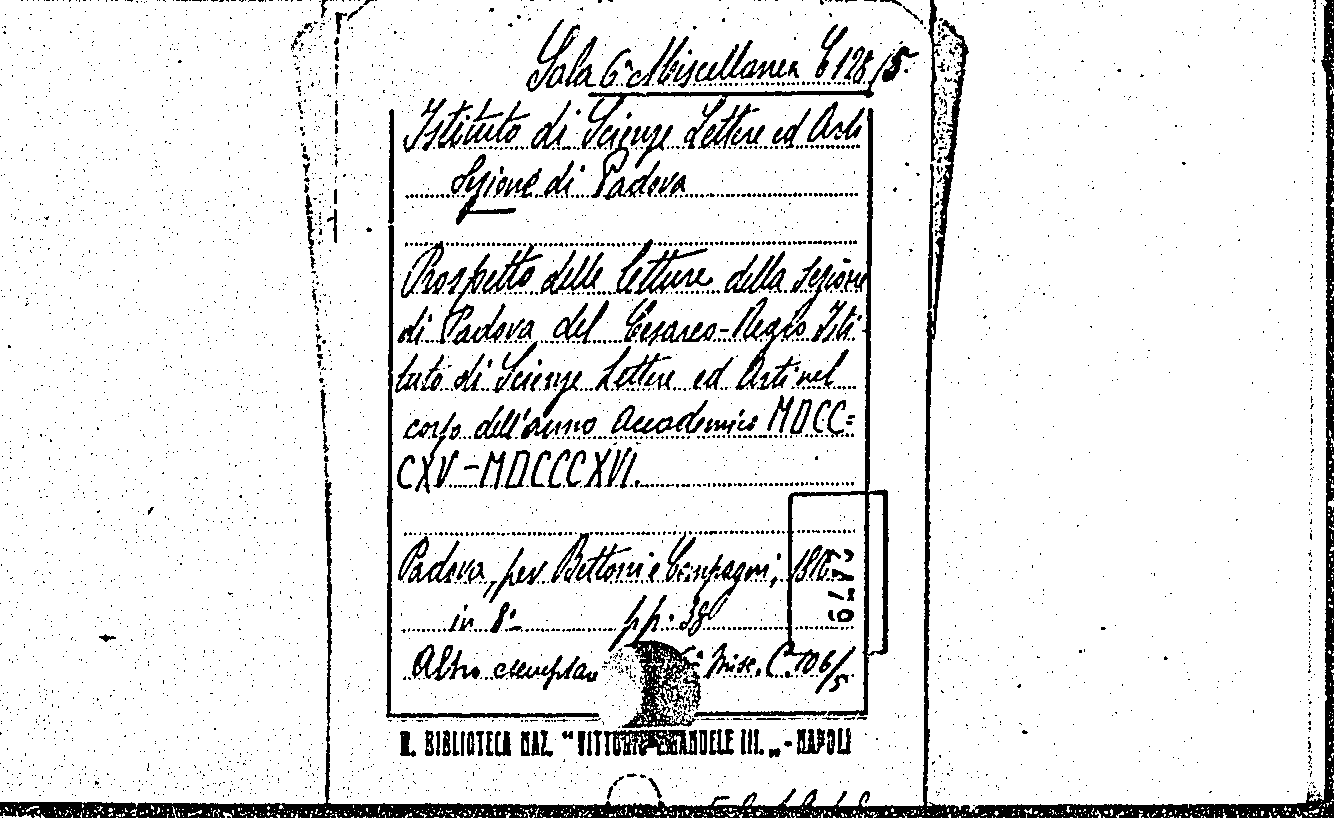 Sala 6ª Miscellanea C 128/5.
Istituto di Scienze Lettere ed Arti
Sezione di Padova
Prospetto delle letture della sezione
di Padova del Cesareo-Regio Isti-
tuto di Scienze Lettere ed Arti nel
corso dell'anno Accademico MDCC=
CXV-MDCCCXVI.
Padova, per Bettoni e Compagni,
in 8°- pp. 38
Altro esemplar Misc. C. 106/5
R. BIBLIOTECA NAZ. "VITTORIO EMANUELE III." - NAPOLI